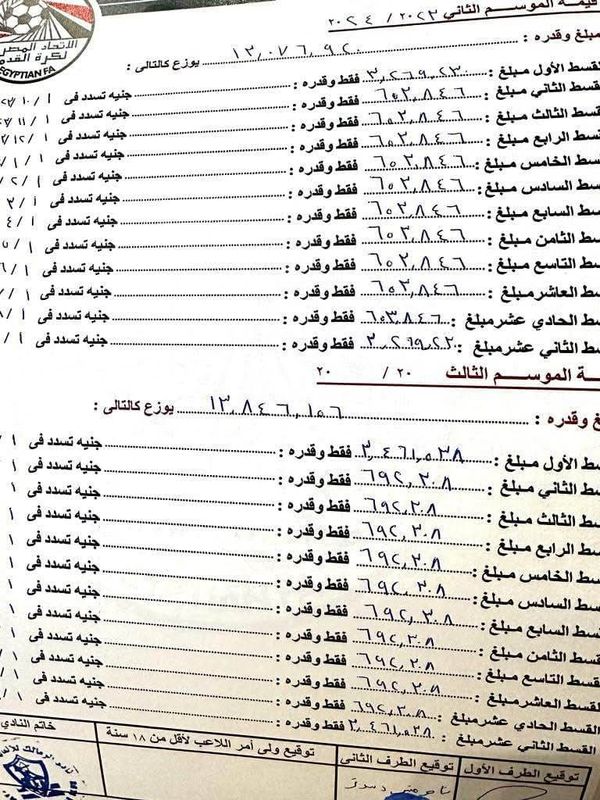 قيمة الموسم الثاني ٢٠٢٣ / ٢٠٢٤
الاتحاد المصرى
لكرة القدم
EGYPTIAN FA
مبلغ وقدره : ١٣,٠٧٦,٩٢٠ يوزع كالتالى :
قسط الأول مبلغ : ٣,٢٦٩,٢٣٠ فقط وقدره : جنيه تسدد فى ١ / ١٠ /
قسط الثاني مبلغ : ٦٥٣,٨٤٦ فقط وقدره : جنيه تسدد فى ١ / ١١ /
قسط الثالث مبلغ : ٦٥٣,٨٤٦ فقط وقدره : جنيه تسدد فى ١ / ١٢ /
سط الرابع مبلغ : ٦٥٣,٨٤٦ فقط وقدره : جنيه تسدد فى ١ / ١
سط الخامس مبلغ : ٦٥٣,٨٤٦ فقط وقدره : جنيه تسدد فى ١ / ٢
سط السادس مبلغ : ٦٥٣,٨٤٦ فقط وقدره : جنيه تسدد فى ١ / ٣
سط السابع مبلغ : ٦٥٣,٨٤٦ فقط وقدره : جنيه تسدد فى ١ / ٤
سط الثامن مبلغ : ٦٥٣,٨٤٦ فقط وقدره : جنيه تسدد فى ١ / ٥
سط التاسع مبلغ : ٦٥٣,٨٤٦ فقط وقدره : جنيه تسدد فى ١ / ٦
سط العاشر مبلغ : ٦٥٣,٨٤٦ فقط وقدره : جنيه تسدد فى ١ / ٧
سط الحادي عشر مبلغ : ٦٥٣,٨٤٦ فقط وقدره : جنيه تسدد فى ١ / ٨
سط الثاني عشر مبلغ : فقط وقدره : جنيه تسدد فى ١ /
ة الموسم الثالث ٢٠ / ٢٠
غ وقدره : ١٣,٨٤٦,١٥٦ يوزع كالتالى :
سط الأول مبلغ : ٣,٤٦١,٥٣٨ فقط وقدره : جنيه تسدد فى ١ /
سط الثاني مبلغ : ٦٩٢,٣٠٨ فقط وقدره : جنيه تسدد فى ١ /
سط الثالث مبلغ : ٦٩٢,٣٠٨ فقط وقدره : جنيه تسدد فى ١
سط الرابع مبلغ : ٦٩٢,٣٠٨ فقط وقدره : جنيه تسدد فى ١
سط الخامس مبلغ : ٦٩٢,٣٠٨ فقط وقدره : جنيه تسدد فى ١
سط السادس مبلغ : ٦٩٢,٣٠٨ فقط وقدره : جنيه تسدد فى ١
سط السابع مبلغ : ٦٩٢,٣٠٨ فقط وقدره : جنيه تسدد فى ١
سط الثامن مبلغ : ٦٩٢,٣٠٨ فقط وقدره : جنيه تسدد فى ١
قسط التاسع مبلغ : ٦٩٢,٣٠٨ فقط وقدره : جنيه تسدد فى ١
القسط العاشر مبلغ : ٦٩٢,٣٠٨ فقط وقدره : جنيه تسدد فى ١
القسط الحادي عشر مبلغ : ٦٩٢,٣٠٨ فقط وقدره : جنيه تسدد فى ١ /
القسط الثاني عشر مبلغ : ٣,٤٦١,٥٣٨ فقط وقدره : جنيه تسدد فى ١ /
توقيع الطرف الأول توقيع الطرف الثانى توقيع ولى أمر اللاعب لأقل من ١٨ سنة خاتم النادي